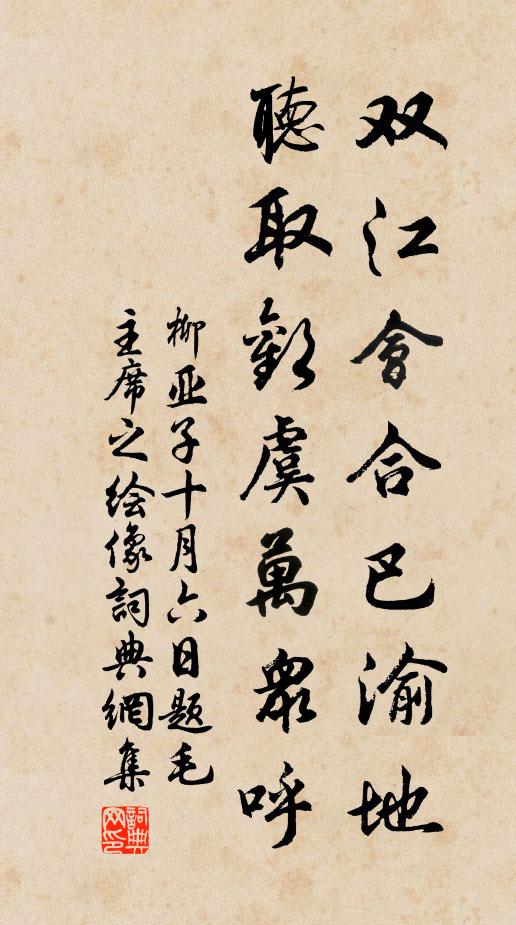 双江會合巴渝地
聽取歡虞萬衆呼
柳亚子十月六日题毛
主席之绘像詞典網集
詞典网印